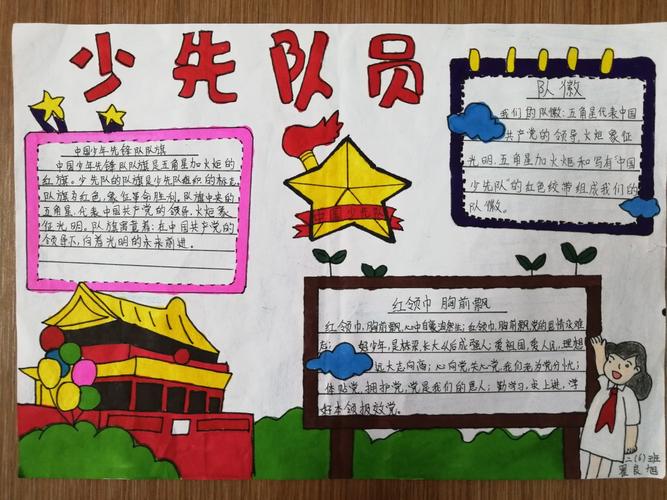 少先队员
中国少年先锋队队旗
中国少年先锋队队旗是五角星加火炬的
红旗。少先队的队旗是少先队组织的标志,
队旗为红色,象征革命胜利。队旗中央的
五角星,代表中国共产党的领导,火炬象
征光明。队旗寓意着:在中国共产党的
领导下,向着光明的未来前进。
中国少年先队
队徽
我们的队徽:五角星代表中国
共产党的领导,火炬象征
光明,五角星加火炬和写有"中国
少先队"的红色绶带组成我们的
队徽。
红领巾 胸前飘
红领巾,胸前飘,心中自豪
红领巾胸前飘,党的恩情永难
好少年,是栋梁,长大以后成强人;爱祖国,爱人民,理想
远大志向高;心向党,关心党,我们为党分忧;
体贴党,拥护党,党是我们的恩人;勤学习,求上进,学
好本领报效党。
二(6)班